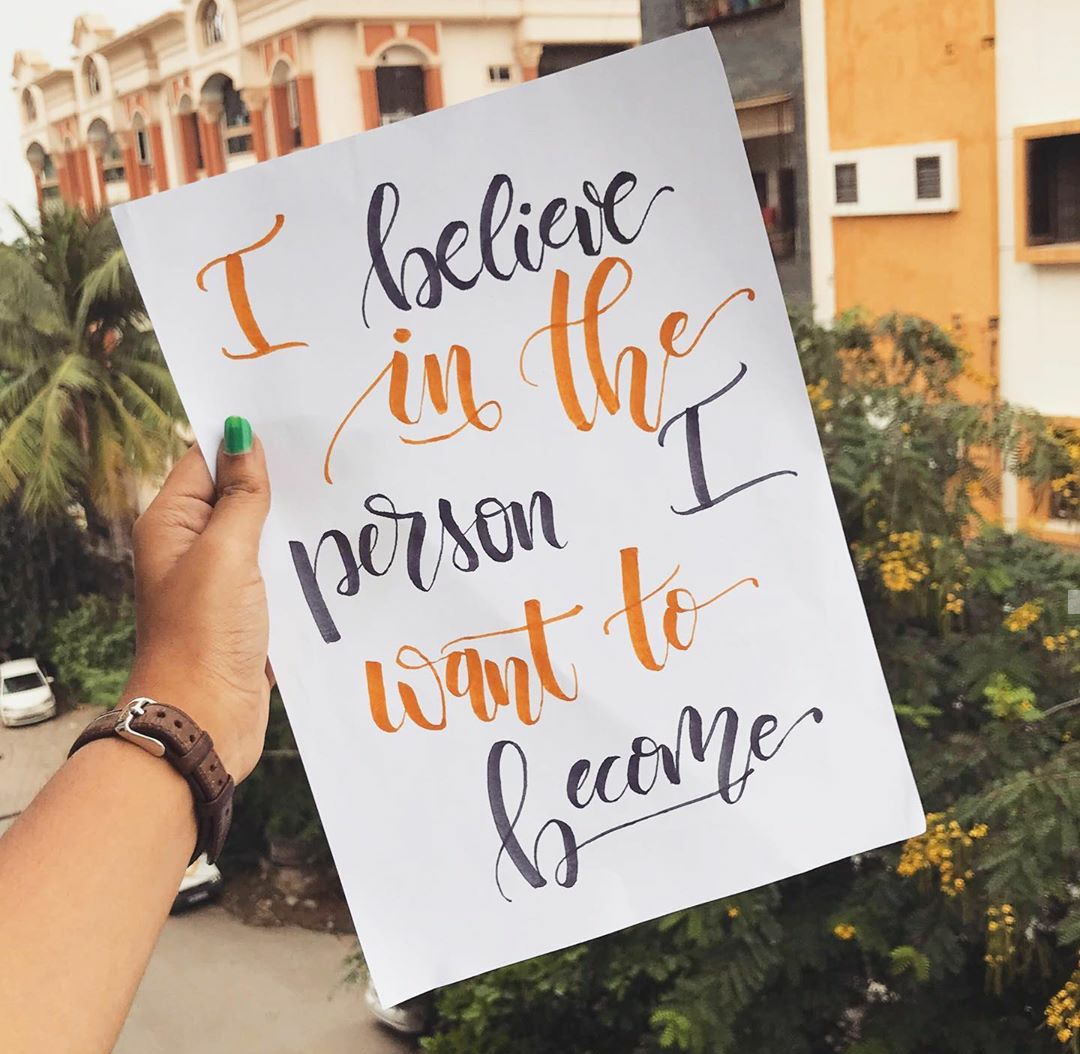 I believe
in the
person I
want to
become